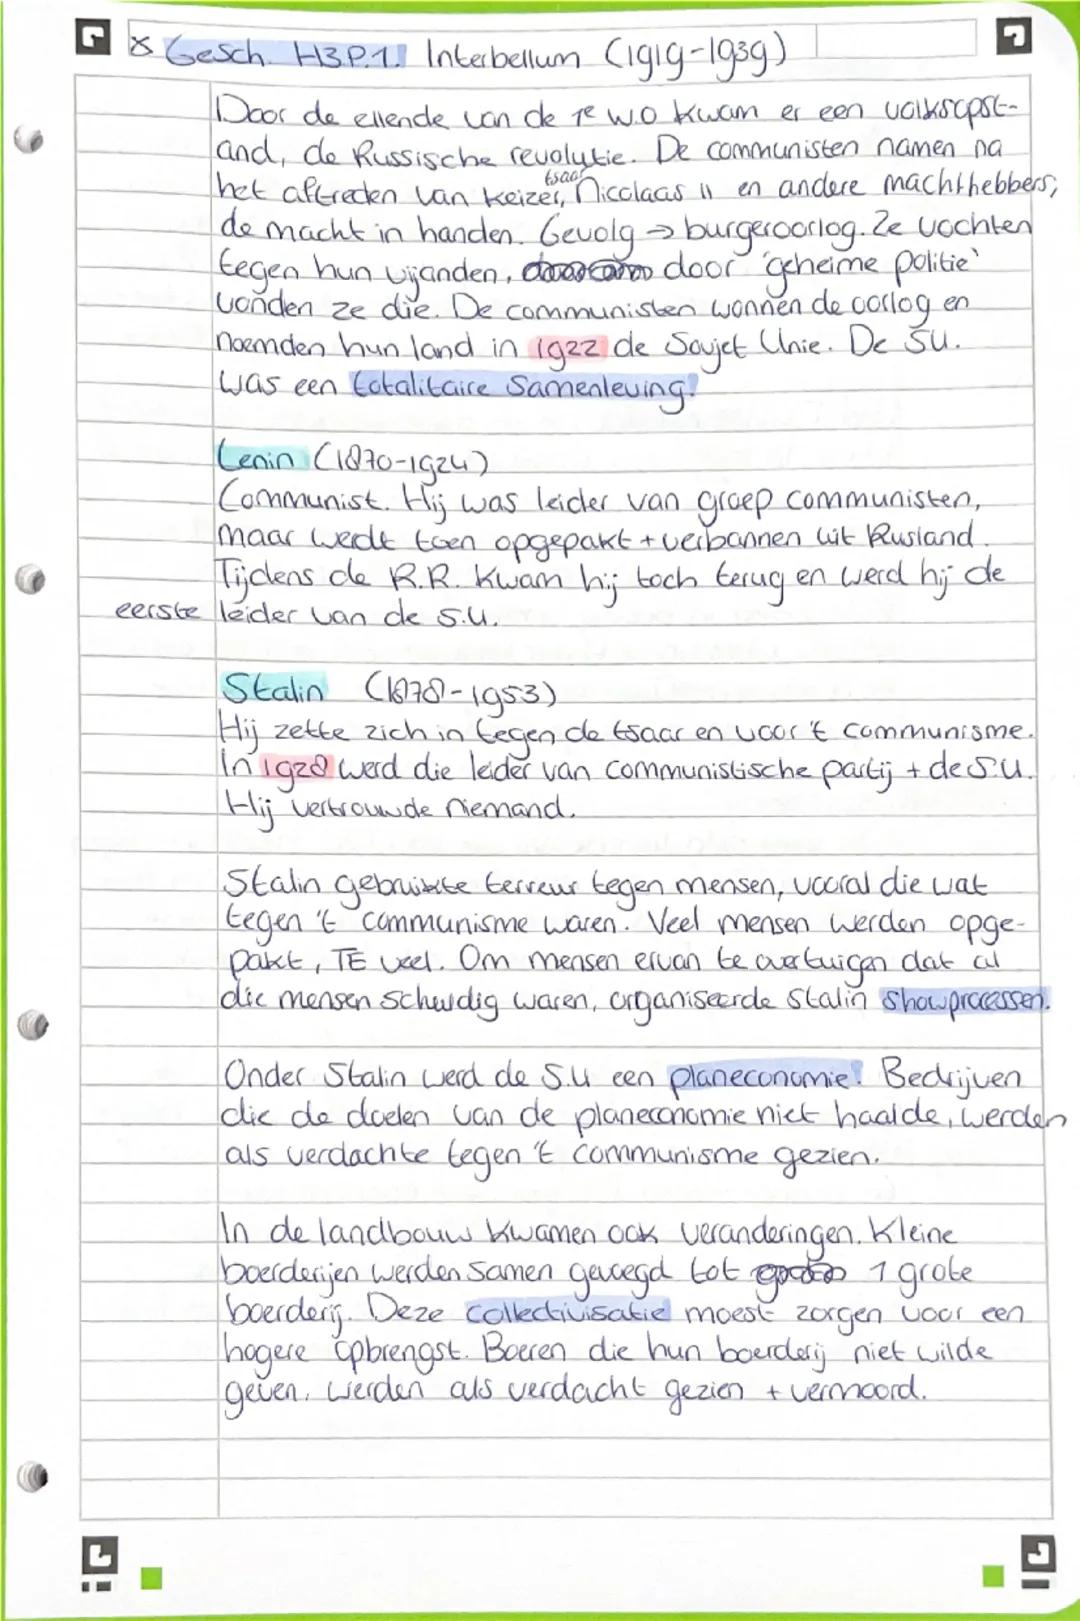 Gesch. H3.P.1. Interbellum (1919-1939)
Door de ellende van de 1e W.O kwam er een volksopst-
and, de Russische revolutie. De communisten namen na
tsaar
het aftreden van keizer, Nicolaas II en andere machthebbers,
de macht in handen. Gevolg → burgeroorlog. Ze vochten
tegen hun vijanden, door 'geheime politie'
vonden ze die. De communisten wonnen de oorlog en
noemden hun land in 1922 de Sovjet Unie. De SU.
was een totalitaire samenleving!
Lenin (1870-1924)
Communist. Hij was leider van groep communisten,
maar werdt toen opgepakt + verbannen uit Rusland.
Tijdens de R.R. kwam hij toch terug en werd hij de
eerste leider van de S.U.
Stalin (1878-1953)
Hij zette zich in tegen de tsaar en voor 't communisme.
In 1928 werd die leider van communistische partij + de S.U.
Hij vertrouwde niemand.
Stalin gebruikte terreur tegen mensen, vooral die wat
tegen 't communisme waren. Veel mensen werden opge-
pakt, TE veel. Om mensen ervan te overtuigen dat al
die mensen schuldig waren, organiseerde Stalin showprocessen.
Onder Stalin werd de S.U een planeconomie! Bedrijven
die de doelen van de planeconomie niet haalde, werden
als verdachte tegen 't communisme gezien.
In de landbouw kwamen ook veranderingen. Kleine
boerderijen werden samen gevoegd tot 1 grote
boerderij. Deze collectivisatie moest zorgen voor een
hogere opbrengst. Boeren die hun boerderij niet wilde
geven, werden als verdacht gezien + vermoord.